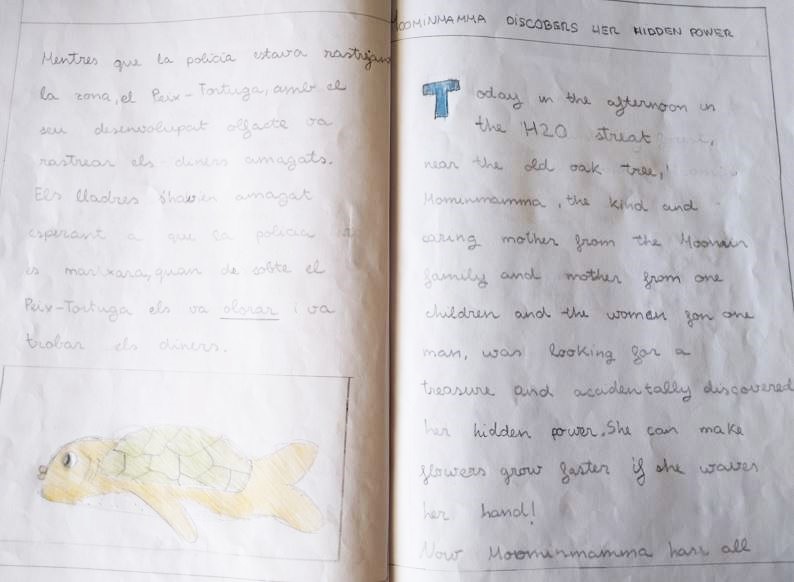 Mentres que la policia estava rastrejan
la zona, el Peix-Tortuga, amb el
seu desenvolupat olfacte va
rastrear els diners amagats.
Els lladres s'havien amagat
esperant a que la policia
es marxara, quan de sobte el
Peix-Tortuga els va olorar i va
trobar els diners.
MOOMINMAMMA DISCOBERS HER HIDDEN POWER
Today in the afternoon in
the H2O streat,
near the old oak tree,
Mominmamma, the kind and
caring mother from the Moomin
family and mother from one
children and the woman for one
man, was looking for a
treasure and accidentally discovered
her hidden power. She can make
flowers grow faster if she waves
her hand!
Now Moominmamma has all